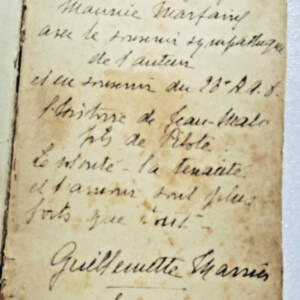 Maurice Marfaing
avec le souvenir sympathique
de l'auteur
et en souvenir du
l'histoire de Jean-Malo
fils de Pilote
La volonté - la tenacité
et l'amour sont plus
forts que tout -
Guillemette Marrier